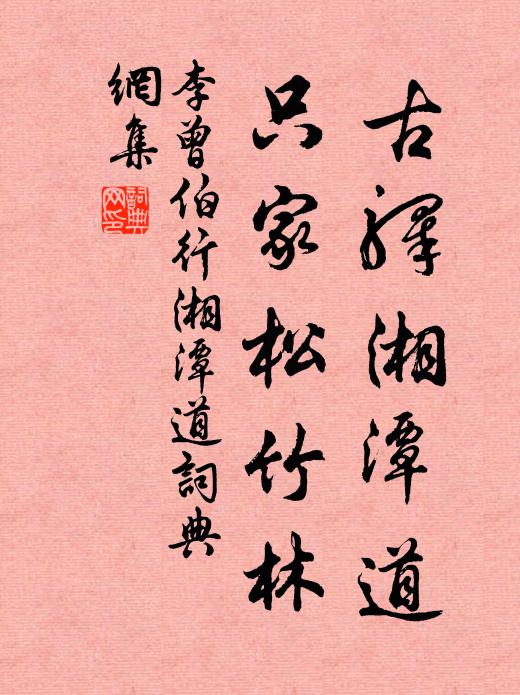 古驛湘潭道
只家松竹林
李曾伯行湘潭道詞典
網集
詞典网印